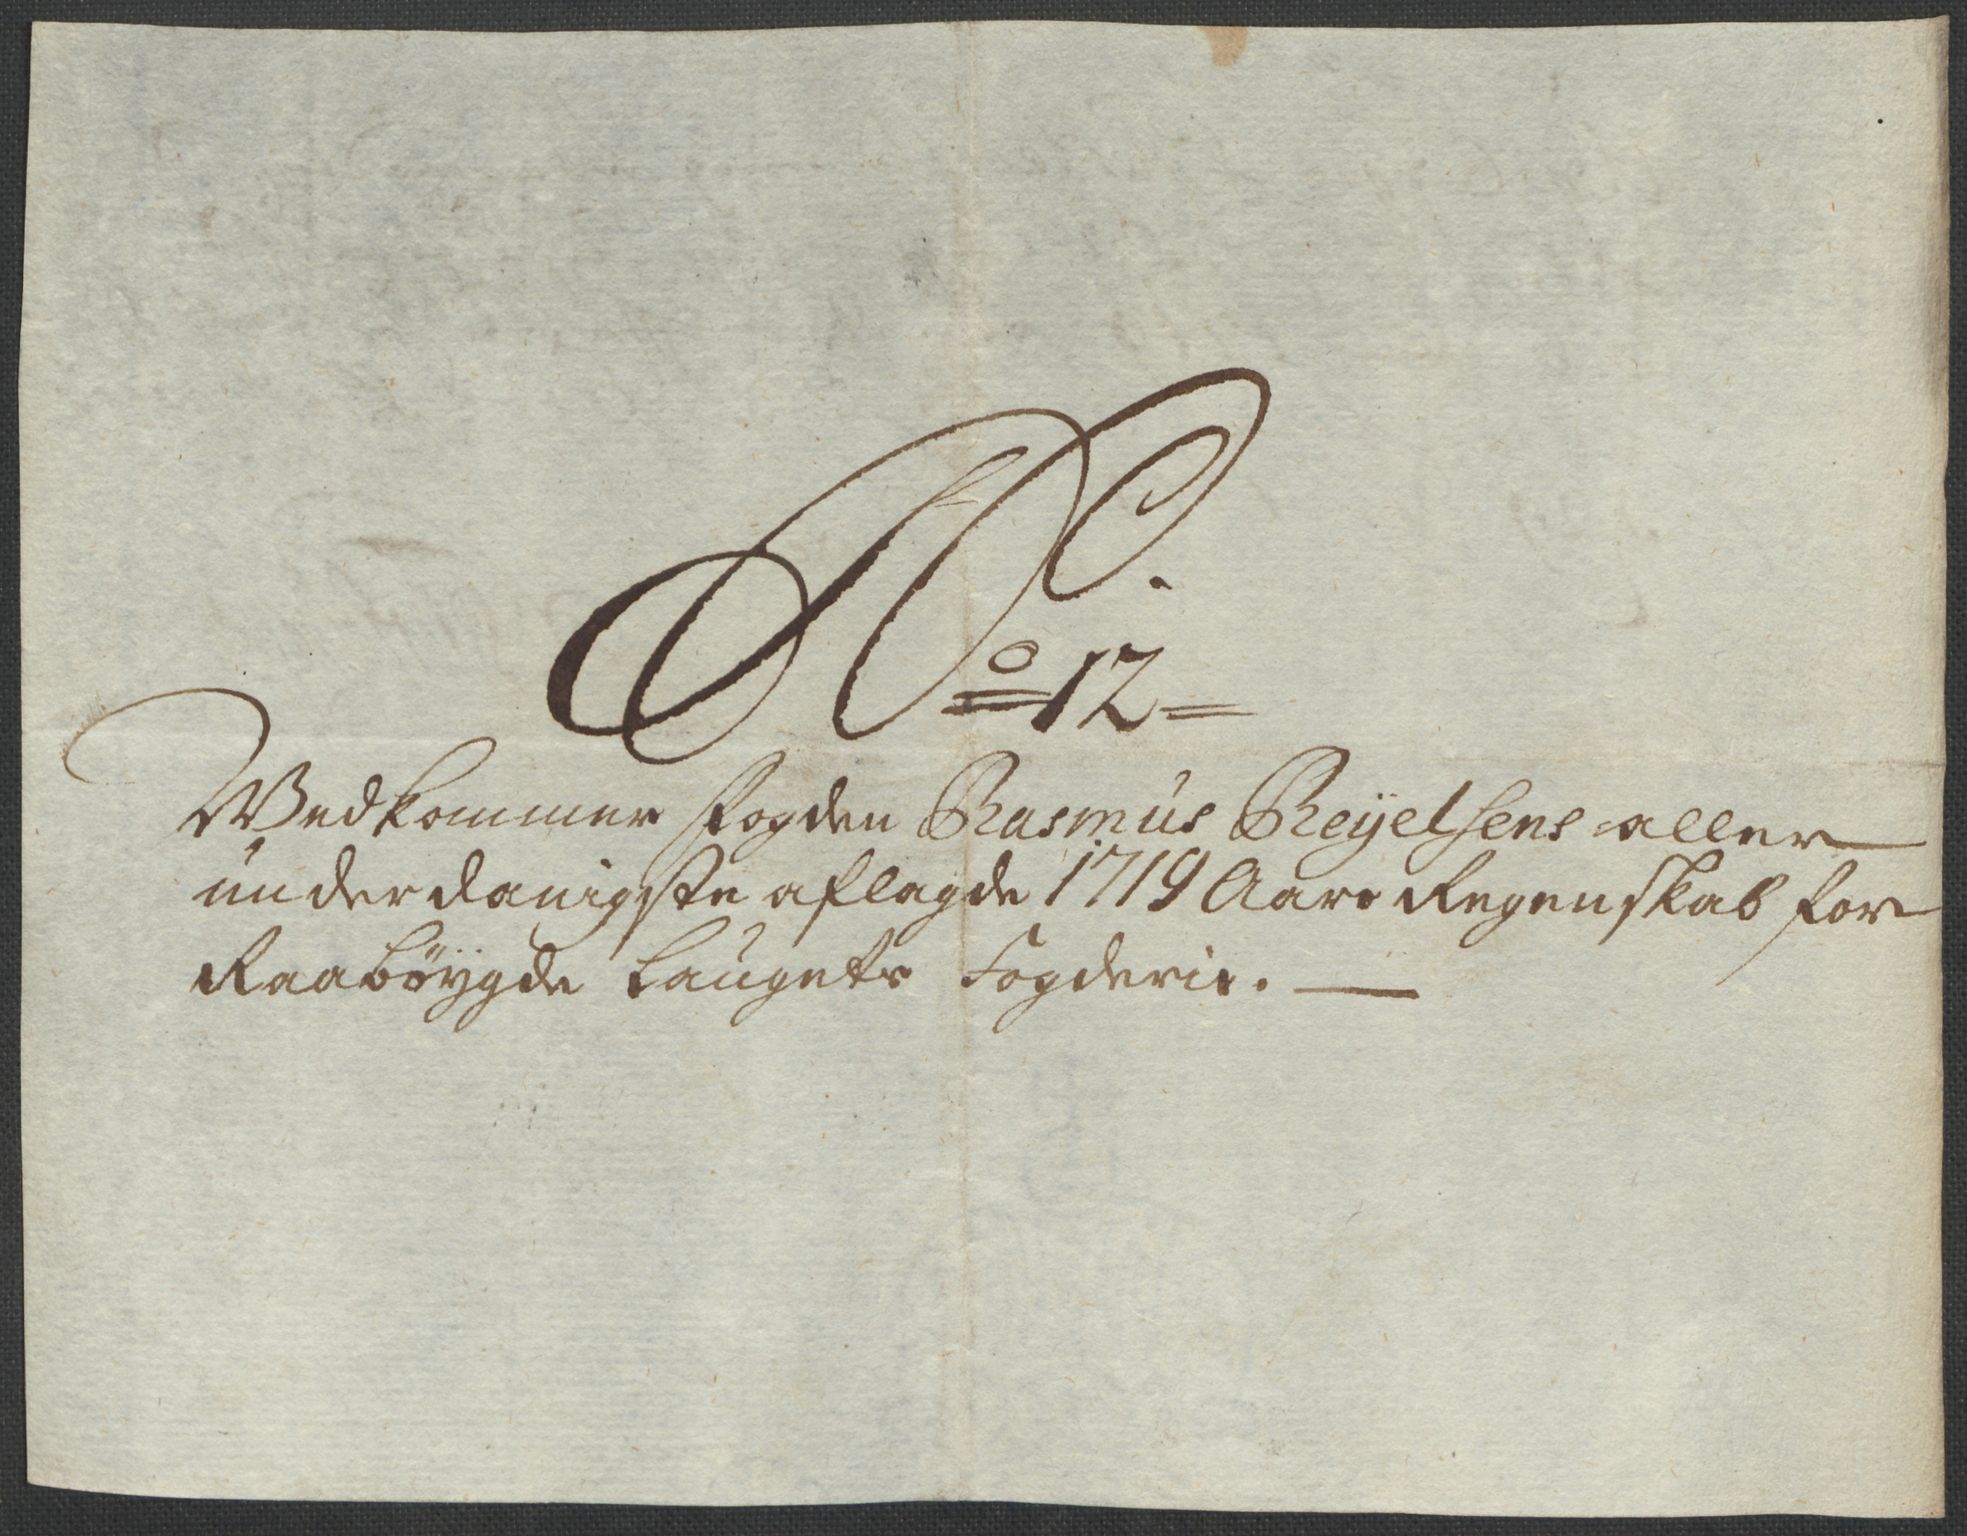 No 12
Vedkommer Fogden Rasmus Reyelsens aller
underdanigste aflagde 1719 Aars Regenskab for
Raabøygde Laugets Fogderie.